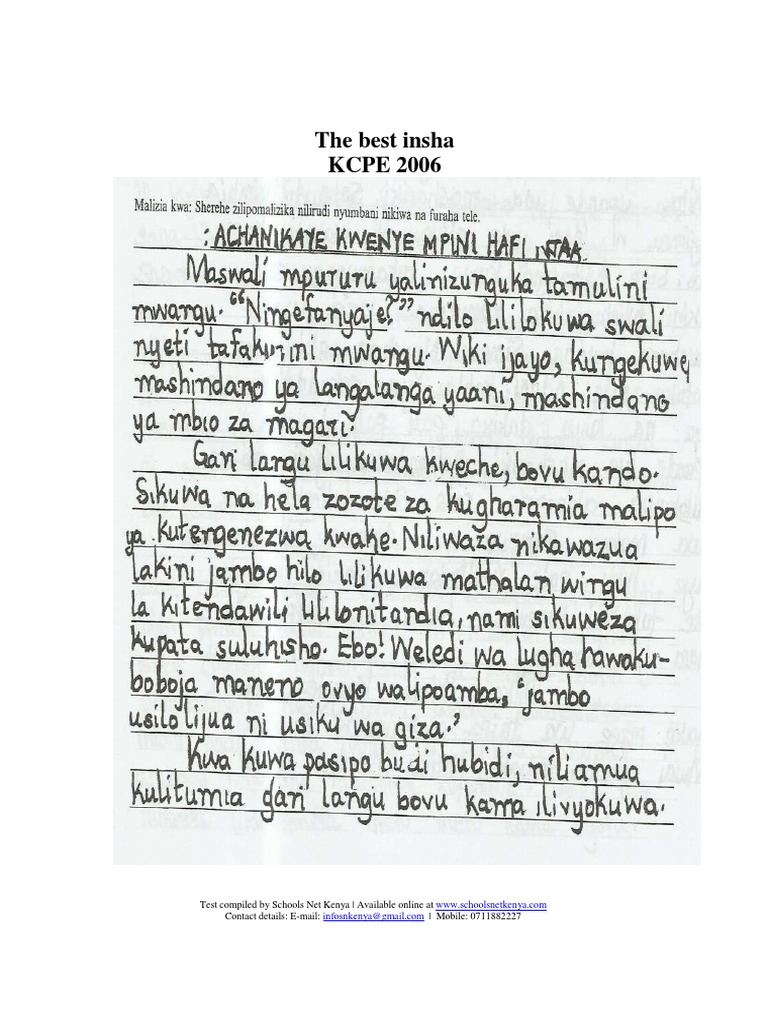 The best insha
KCPE 2006
Malizia kwa: Sherehe zilipomalizika nilirudi nyumbani nikiwa na furaha tele.
: ACHANIKAYE KWENYE MPINI HAFI NJAA.
Maswali mpururu yalinizunguka tamulini
mwangu. “Ningefanyaje?” ndilo lililokuwa swali
nyeti tafakurini mwangu. Wiki ijayo, kungekuwa
mashindano ya langalanga yaani, mashindano
ya mbio za magari.
Gari langu lilikuwa kweche, bovu kando.
Sikuwa na hela zozote za kugharamia malipo
ya kutengenezwa kwake. Niliwaza nikawazua
lakini jambo hilo lilikuwa mathalan wingu
la kitendawili lililonitandia, nami sikuweza
kupata suluhisho. Ebo! Weledi wa lugha hawaku-
boboja maneno ovyo walipoamba, ‘jambo
usilolijua ni usiku wa giza.’
Kwa kuwa pasipo budi hubidi, niliamua
kulitumia gari langu bovu kama ilivyokuwa.
Test compiled by Schools Net Kenya | Available online at www.schoolsnetkenya.com
Contact details: E-mail: infosnkenya@gmail.com | Mobile: 0711882227